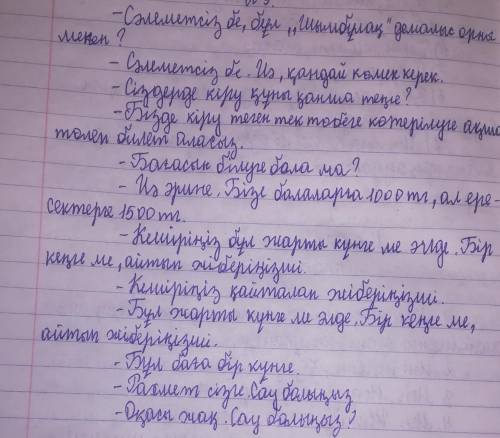 - Сәлеметсіз бе, бұл „Шымбұлақ" демалыс орны
мекен ?
- Сәлеметсіз бе. Иә, қандай көмек керек.
- Сіздерде кіру құны қанша теңге?
- Бізде кіру теген тек төбеге көтерілуге ақша
төлеп билет аласыз.
- Бағасын білуге бола ма?
- Иә әрине. Бізе балаларға 1000 тг, ал ере-
сектерге 1500 тг.
- Кешіріңіз бұл жарты күнге ме әлде. Бір
кеңге ме, айтып жіберіңізші.
- Кешіріңіз қайталап жіберіңізші.
- Бұл жарты күнге ме әлде. Бір кеңге ме,
айтып жіберіңізші.
- Бұл баға бір күнге.
- Рахмет сізге. Сау болыңыз
- Оқасы жақ. Сау болыңыз?